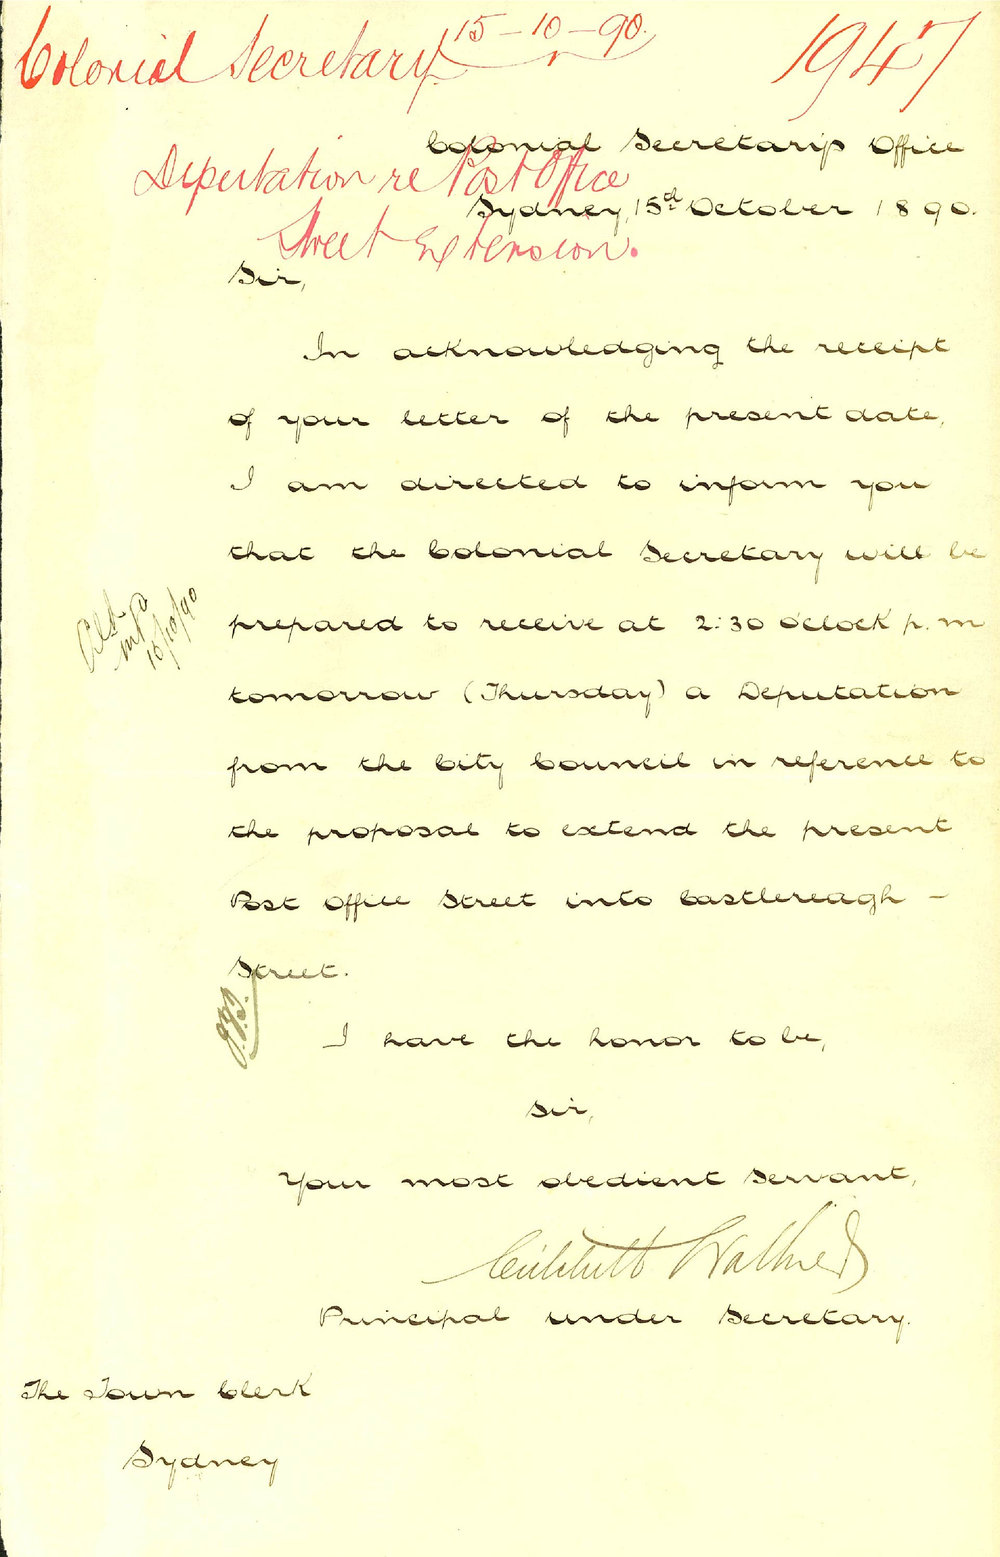 Colonial Secretary 15-10-90. 1947
Colonial Secretary's Office
Deputation re Post Office
Sydney, 15th October 1890.
Street Extension.
Sir,
In acknowledging the receipt
of your letter of the present date,
I am directed to inform you
that the Colonial Secretary will be
prepared to receive at 2:30 o'clock p.m
tomorrow (Thursday) a Deputation
from the City Council in reference to
the proposal to extend the present
Post Office Street into Castlereagh -
Street.
I have the honor to be,
Sir,
Your most obedient Servant,
Critchett Walker
Principal under Secretary.
The Town Clerk
Sydney